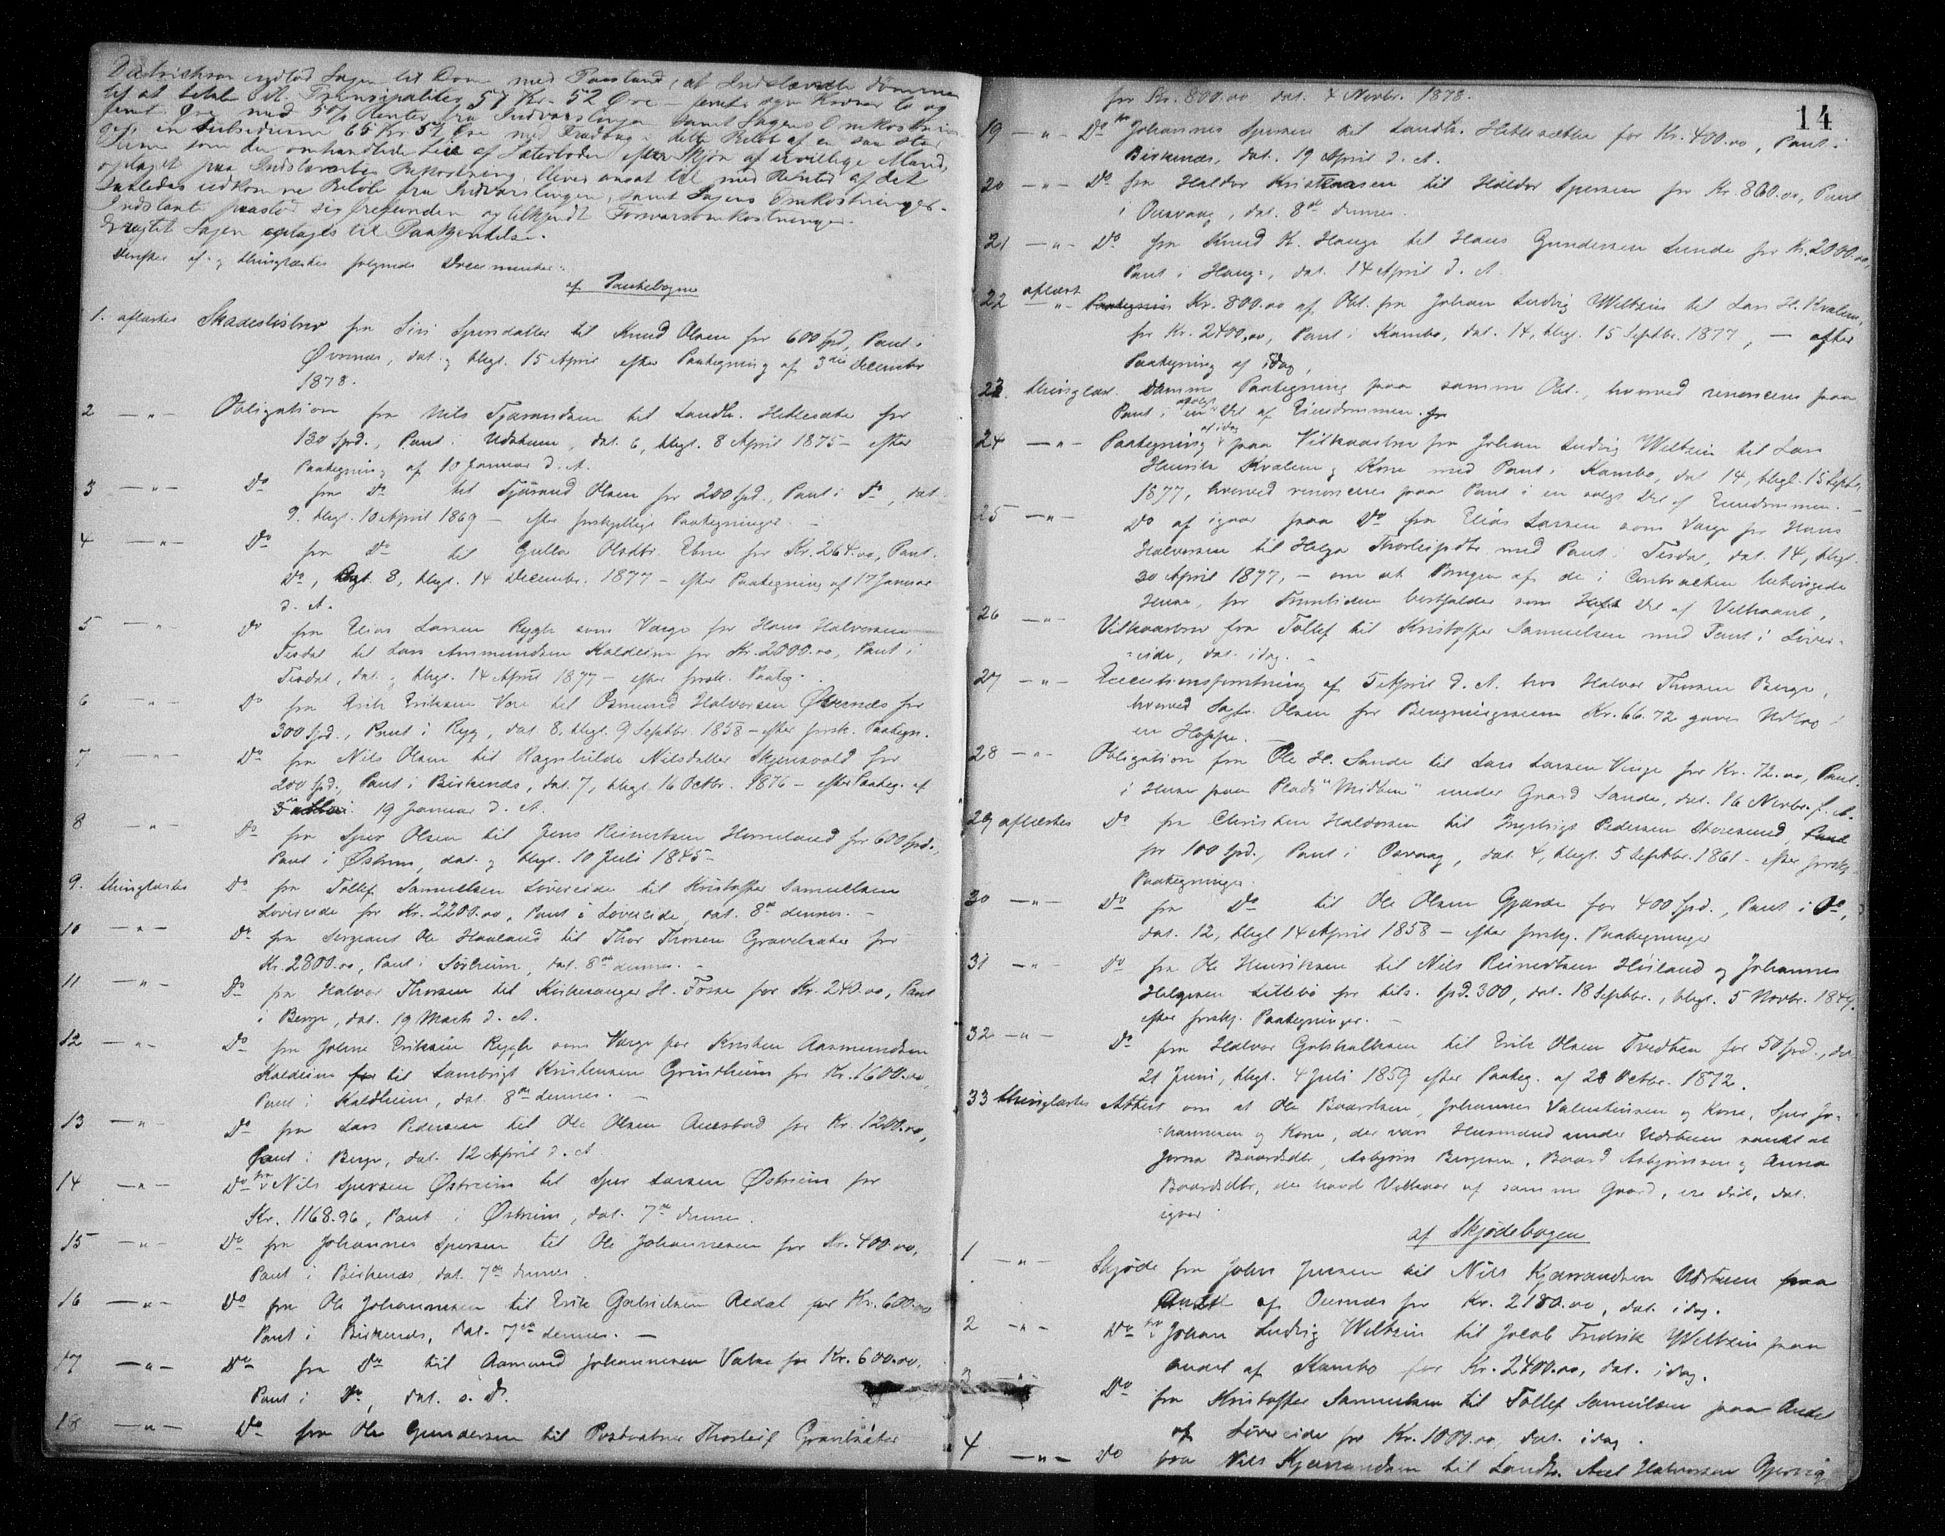 Didrichsen indlod Sagen til Dom med Paastand, at Indstævnte dømmes
til at betale Ctt. Principaliter 57 Kr. 52 Øre
med 5% Renter fra Indvarslingen samt Sagens Omkostnin-
ger, in subsidium 65 Kr 52 Øre med Fradrag i dette Beløb af en saa stor
Sum som den omhandlede Del af Søterboden efter Skjøn af uvillige Mænd,
optaget paa Indstævntes Bekostning, bliver ansat til med Renter af det
saaledes udkomne Beløb fra Indvarslingen, samt Sagens Omkostninger.
Indstævnte paastod sig frifunden og tilkjendt Forsvarsomkostninger.
Eragtet Sagen optages til Paakjendelse.
Derefter af- og thinglæstes følgende Documenter:
af Pantebogen
1. aflæstes Skadesløsbrev fra Siri Sjursdatter til Knud Olsen for 600 Spd, Pant i
Øvernes, dat. og thgl. 15 April efter Paategning af 3die December
1878.
2 —"— Obligation fra Nils Tjærandsen til Landh. Hetlesæter for
130 Spd., Pant i Udstuen, dat. 6, thgl. 8 April 1875 – efter
Paategning af 10 Januar d. A.
3 —"— Do fra Do til Tjärand Olsen for 200 Spd., Pant i Do, dat.
9. thgl. 10 April 1869 – efter forskjellige Paategninger. –
4 —"— Do fra Do til Gulla Olsdtr. Ebne for Kr. 264.00, Pant i
Do, dat 8, thgl. 14 December 1877 – efter Paategning af 17 Januar
d. A.
5 —"— Do fra Elias Larsen Rygh som Værge for Hans Halvorsen
Tesdal til Lars Aasmundsen Kaldeim for Kr. 2000.00, Pant i
Tesdal, dat. og thgl. 14 April 1877 – efter forsk. Paateg. –
6 —"— Do fra Erik Eriksen Vore til Osmund Halvorsen Øvernæs for
300 Spd., Pant i Rygg, dat. 8, thgl. 9 Septbr. 1858 – efter forsk. Paategn.
7 —"— Do fra Nils Olsen til Ragnhilde Nilsdatter Skjensvold for
200 Spd., Pant i Birkenæs, dat. 7, thgl 16 Octbr. 1876 – efter Paateg. af
19 Januar d. A.
8 —"— Do fra Sjur Olsen til Jens Reinertsen Horneland for 600 Spd.,
Pant i Østrem, dat. og thgl. 10 Juli 1845 –
9. thinglæstes Do fra Tollef Samuelsen Løvereide til Kristoffer Samuelsen
Løvereide for Kr. 2200.00, Pant i Løvereide, dat. 8de dennes. –
10 —"— Do fra Sergeant Ole Haaland til Thor Thorsen Gravelsæter for
Kr. 2800.00, Pant i Sørheim, dat. 8de dennes. –
11 —"— Do fra Halvor Thorsen til Kirkesanger H. Fosse for Kr. 240.00, Pant
i Berge, dat. 19 Marts d. A.
12 —"— Do fra Johne Eriksen Rygh som Værge for Kristen Aasmundsen
Kaldeim til Lambrigt Kristensen Grindheim for Kr. 1600.00,
Pant i Kaldheim, dat. 8de dennes. –
13 —"— Do fra Lars Pedersen til Ole Olsen Aarsbad for Kr 1200.00,
Pant i Berge, dat. 12 April d. A
14 —"— Do fra Nils Sjursen Østreim til Sjur Larsen Østreim for
Kr. 1168.96, Pant i Østreim, dat. 7de dennes.
15 —"— Do fra Johannes Sjursen til Ole Johannesen for Kr. 400.00,
Pant i Birkenæs, dat. 7de dennes.
16 —"— Do fra Ole Johannesen til Erik Gabrielsen Rødal for Kr. 600.00
Pant i Birkenæs, dat. 7de dennes. –
17 —"— Do fra Do til Aamund Johannesen Vatne for Kr. 600.00,
Pant i Do, dat. s. D.
18 —"— Do fra Ole Gundersen til Postaabner Thorleif Gravelsæter
14
for Kr. 800.00 dat. 4 Novbr. 1878.
19 —"— Do fra Johannes Sjursen til Landh. Hetlesætter for Kr. 400.00, Pant i
Birkenæs, dat. 19 April d. A.
20 —"— Do fra Haldor Kristensen til Haldor Sjursen for Kr. 860.00, Pant
i Ousvaag, dat. 8de dennes.
21 —"— Do fra Knud K. Hauge til Hans Gundersen Lunde for Kr. 2000.00,
Pant i Hauge, dat. 14 April d. A.
22 aflæst —"— Paategnin Kr. 800.00 af Obl. fra Johan Ludvig Weltzin til Lars H. Kvalem,
for Kr. 2400.00, Pant i Kambo, dat. 14, thgl. 15 Septbr. 1877, – efter
Paategning af idag,
23. thinglæs. Samme Paategning paa samme Obl., hvorved renonceres paa
Pant i en solgt Del af Eiendommen.
24 —"— Paategning af idag paa Vilkaarsbrev fra Johan Ludvig Weltzin til Lars
Henrik Kvalem og Kone med Pant i Kambo, dat 14, thgl. 15 Septbr.
1877, hvorved renonceres paa Pant i en solgt Del af Eiendommen. –
25 —"— Do af igaar paa Do fra Elias Larsen som Værge for Hans
Halvorsen til Helga Thorleifsdtr. med Pant i Tesdal, dat. 14, thgl.
20 April 1877, – om at Brugen af de i Contracten betingede
Huse, for Fremtiden bortfalder som Del af Vilkaaret,
26 —"— Vilkaarsbrev fra Tollef til Kristoffer Samuelsen med Pant i Løver-
eide, dat. idag. –
27 —"— Executionsforretning af 5 April d. A. hos Halvor Thorsen Berge,
hvorved Sagf. Olsen for Bergningssum Kr. 66.72 gaves Udlæg i
en Hoppe. –
28 —"— Obligation fra Ole H. Sande til Lars Larsen Vinge for Kr. 72.00, Pant
i Huse paa Plads "Midtun" under Gaard Sande, dat. 16 Novbr. f. A.
29 aflæstes Do fra Christen Haldorsen til Ingebrigt Pedersen Storesund,
for 100 Spd., Pant i Osvaag, dat. 4, thgl. 5 Septbr. 1861 – efter forskj.
Paategninger.
30 —"— Do fra Do til Ole Olsen Gjærde for 400 Spd., Pant i Do,
dat. 12, thgl 14 April 1858 – efter forskj. Paategninger
31 —"— Do fra Ole Henriksen til Nils Reinertsen Høiland og Johannes
Helgesen Littlebø for tils. Spd. 300, dat. 18 Septbr., thgl. 5 Novbr. 1849.
efter forskj. Paategninger. –
32 —"— Do fra Halvor Gotskalksen til Erik Olsen Tvedten for 50 Spd., dat.
21 Juni, thgl. 4 Juli 1859 efter Paateg. af 28 Octbr. 1872.
33 thinglæstes Attest om at Ole Baardsen, Johannes Valentinsen og Kone, Sjur Jo-
hannesen og Kone, der vare Husmænd under Udstuen samt at
Jorna Baardsdtr, Asbjørn Bergesen, Baard Asbjørnsen og Anna
Baardsdtr, der havde Vilkaar af samme Gaard, ere død, dat.
igaar.
af Skjødebogen
1 —"— Skjøde fra John Jensen til Nils Kjærrandsen Udstuen paa
Andel af Ousnæs for Kr. 2180.00, dat. idag.
2 —"— Do fra Johan Ludvig Weltzin til Jacob Fredrik Weltzin paa
andel af Kambo for Kr. 2400.00, dat. idag.
3 —"— Do fra Kristoffer Samuelsen til Tollef Samuelsen paa Andel
af Løvereide for Kr. 1000.00, dat. idag.
4 —"— Do fra Nils Kjærrandsen til Landh. Axel Halvorsen Gjervig